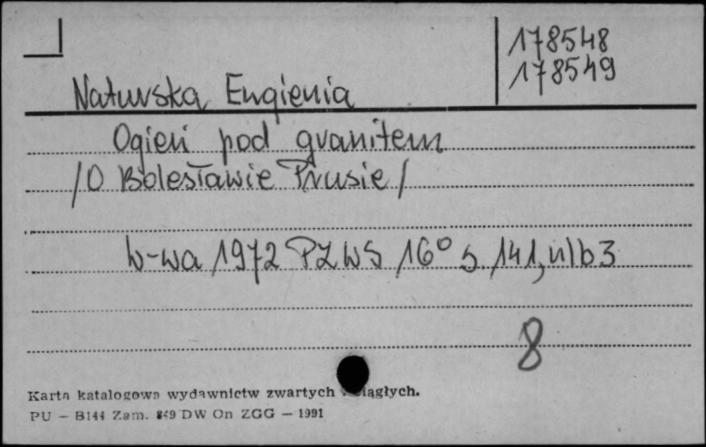 178548
178549
Naturska, Eugienia
Ogień pod granitem
/O Bolesławie Prusie/
W-wa 1972 PZWS 16° s. 141, nlb 3
8
Karta katalogowa wydawnictw zwartych ciągłych.
PU — B144 Zam. DW On ZGG — 1991